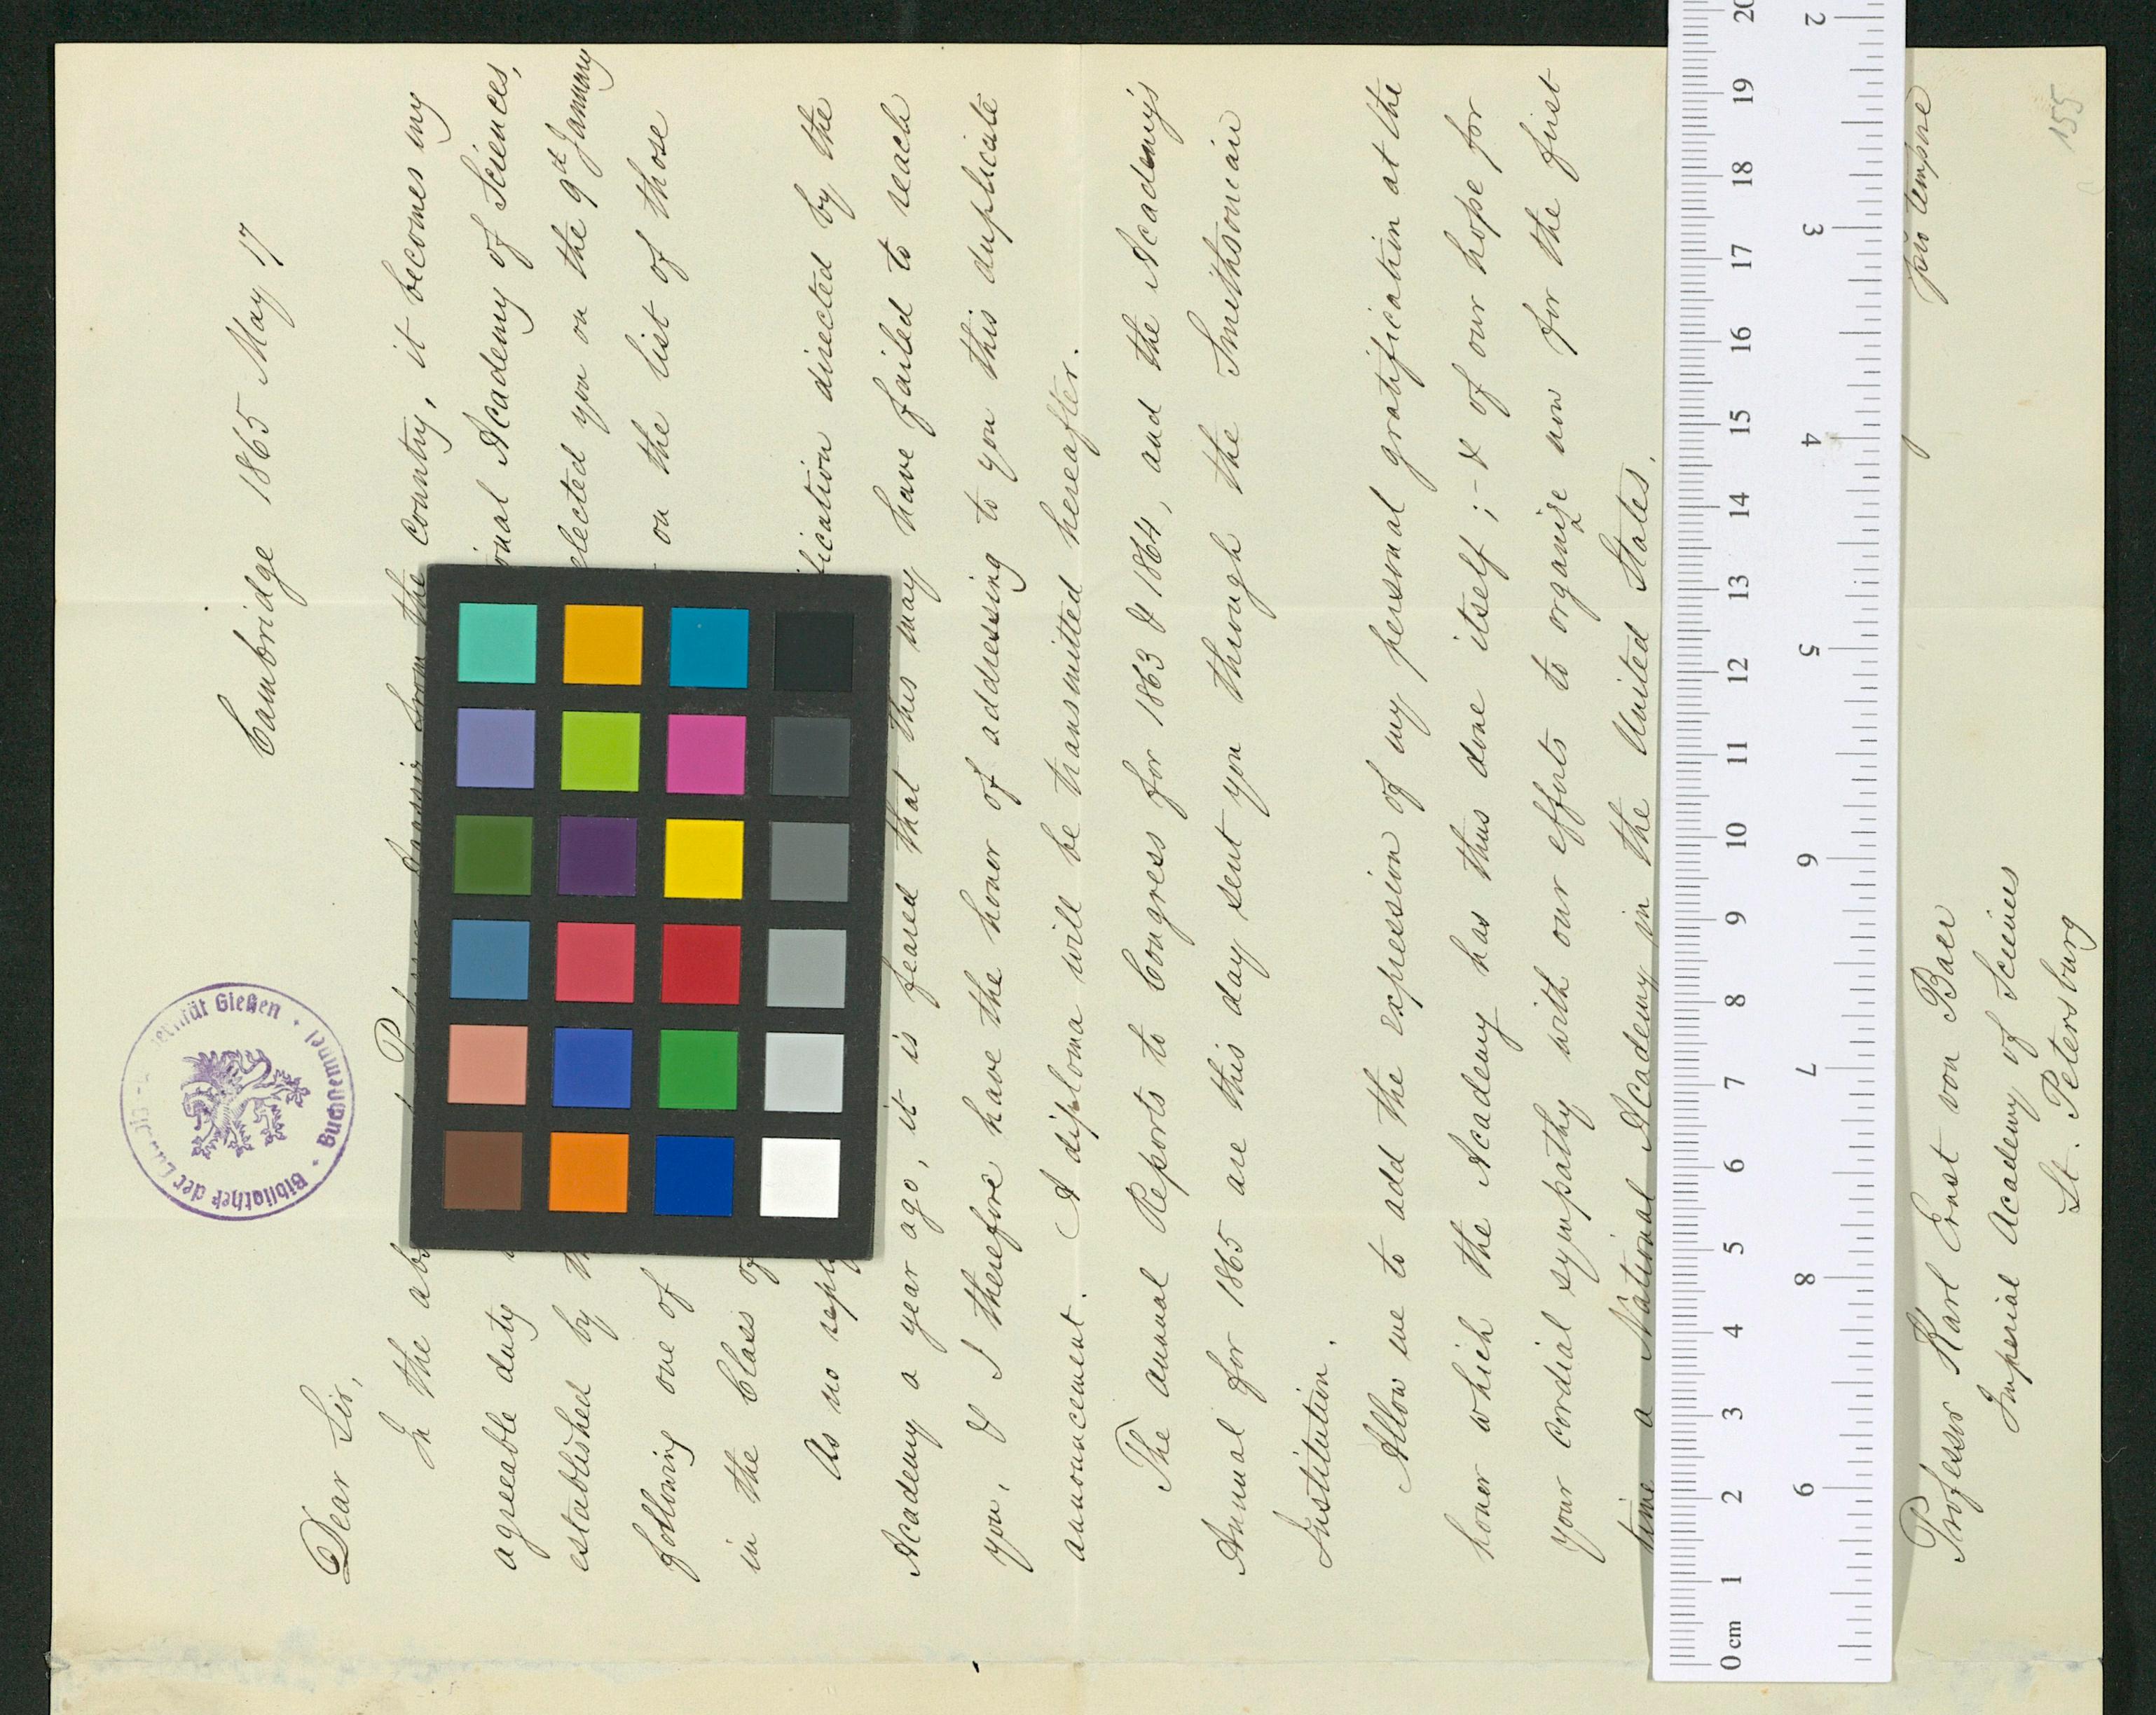 Cambridge 1865 May 17
Dear Sir,
In the country, it becomes my
agreeable duty Academy of Sciences,
established by elected you on the 9th January
following one of on the list of those
in the Class
As no directed by the
Academy a year ago, it is feared that this may have failed to reach
you, & I therefore have the honor of addressing to you this duplicate
announcement. A diploma will be transmitted hereafter.
The annual Reports to Congress for 1863 & 1864, and the Academy's
Annual for 1865 are this day sent you through the Smithsonian
Institution.
Allow me to add the expression of my personal gratification at the
honor which the Academy has thus done itself; - & of our hope for
your cordial sympathy with our efforts to organize now for the first
time a National Academy in the United States.
pro tempore
Professor Karl Ernst von Baer
Imperial Academy of Sciences
St. Petersburg
155
Bibliothek der Gießen · Buchstempel ·
0 cm 1 2 3 4 5 6 7 8 9 10 11 12 13 14 15 16 17 18 19 20
2 3 4 5 6 7 8 9